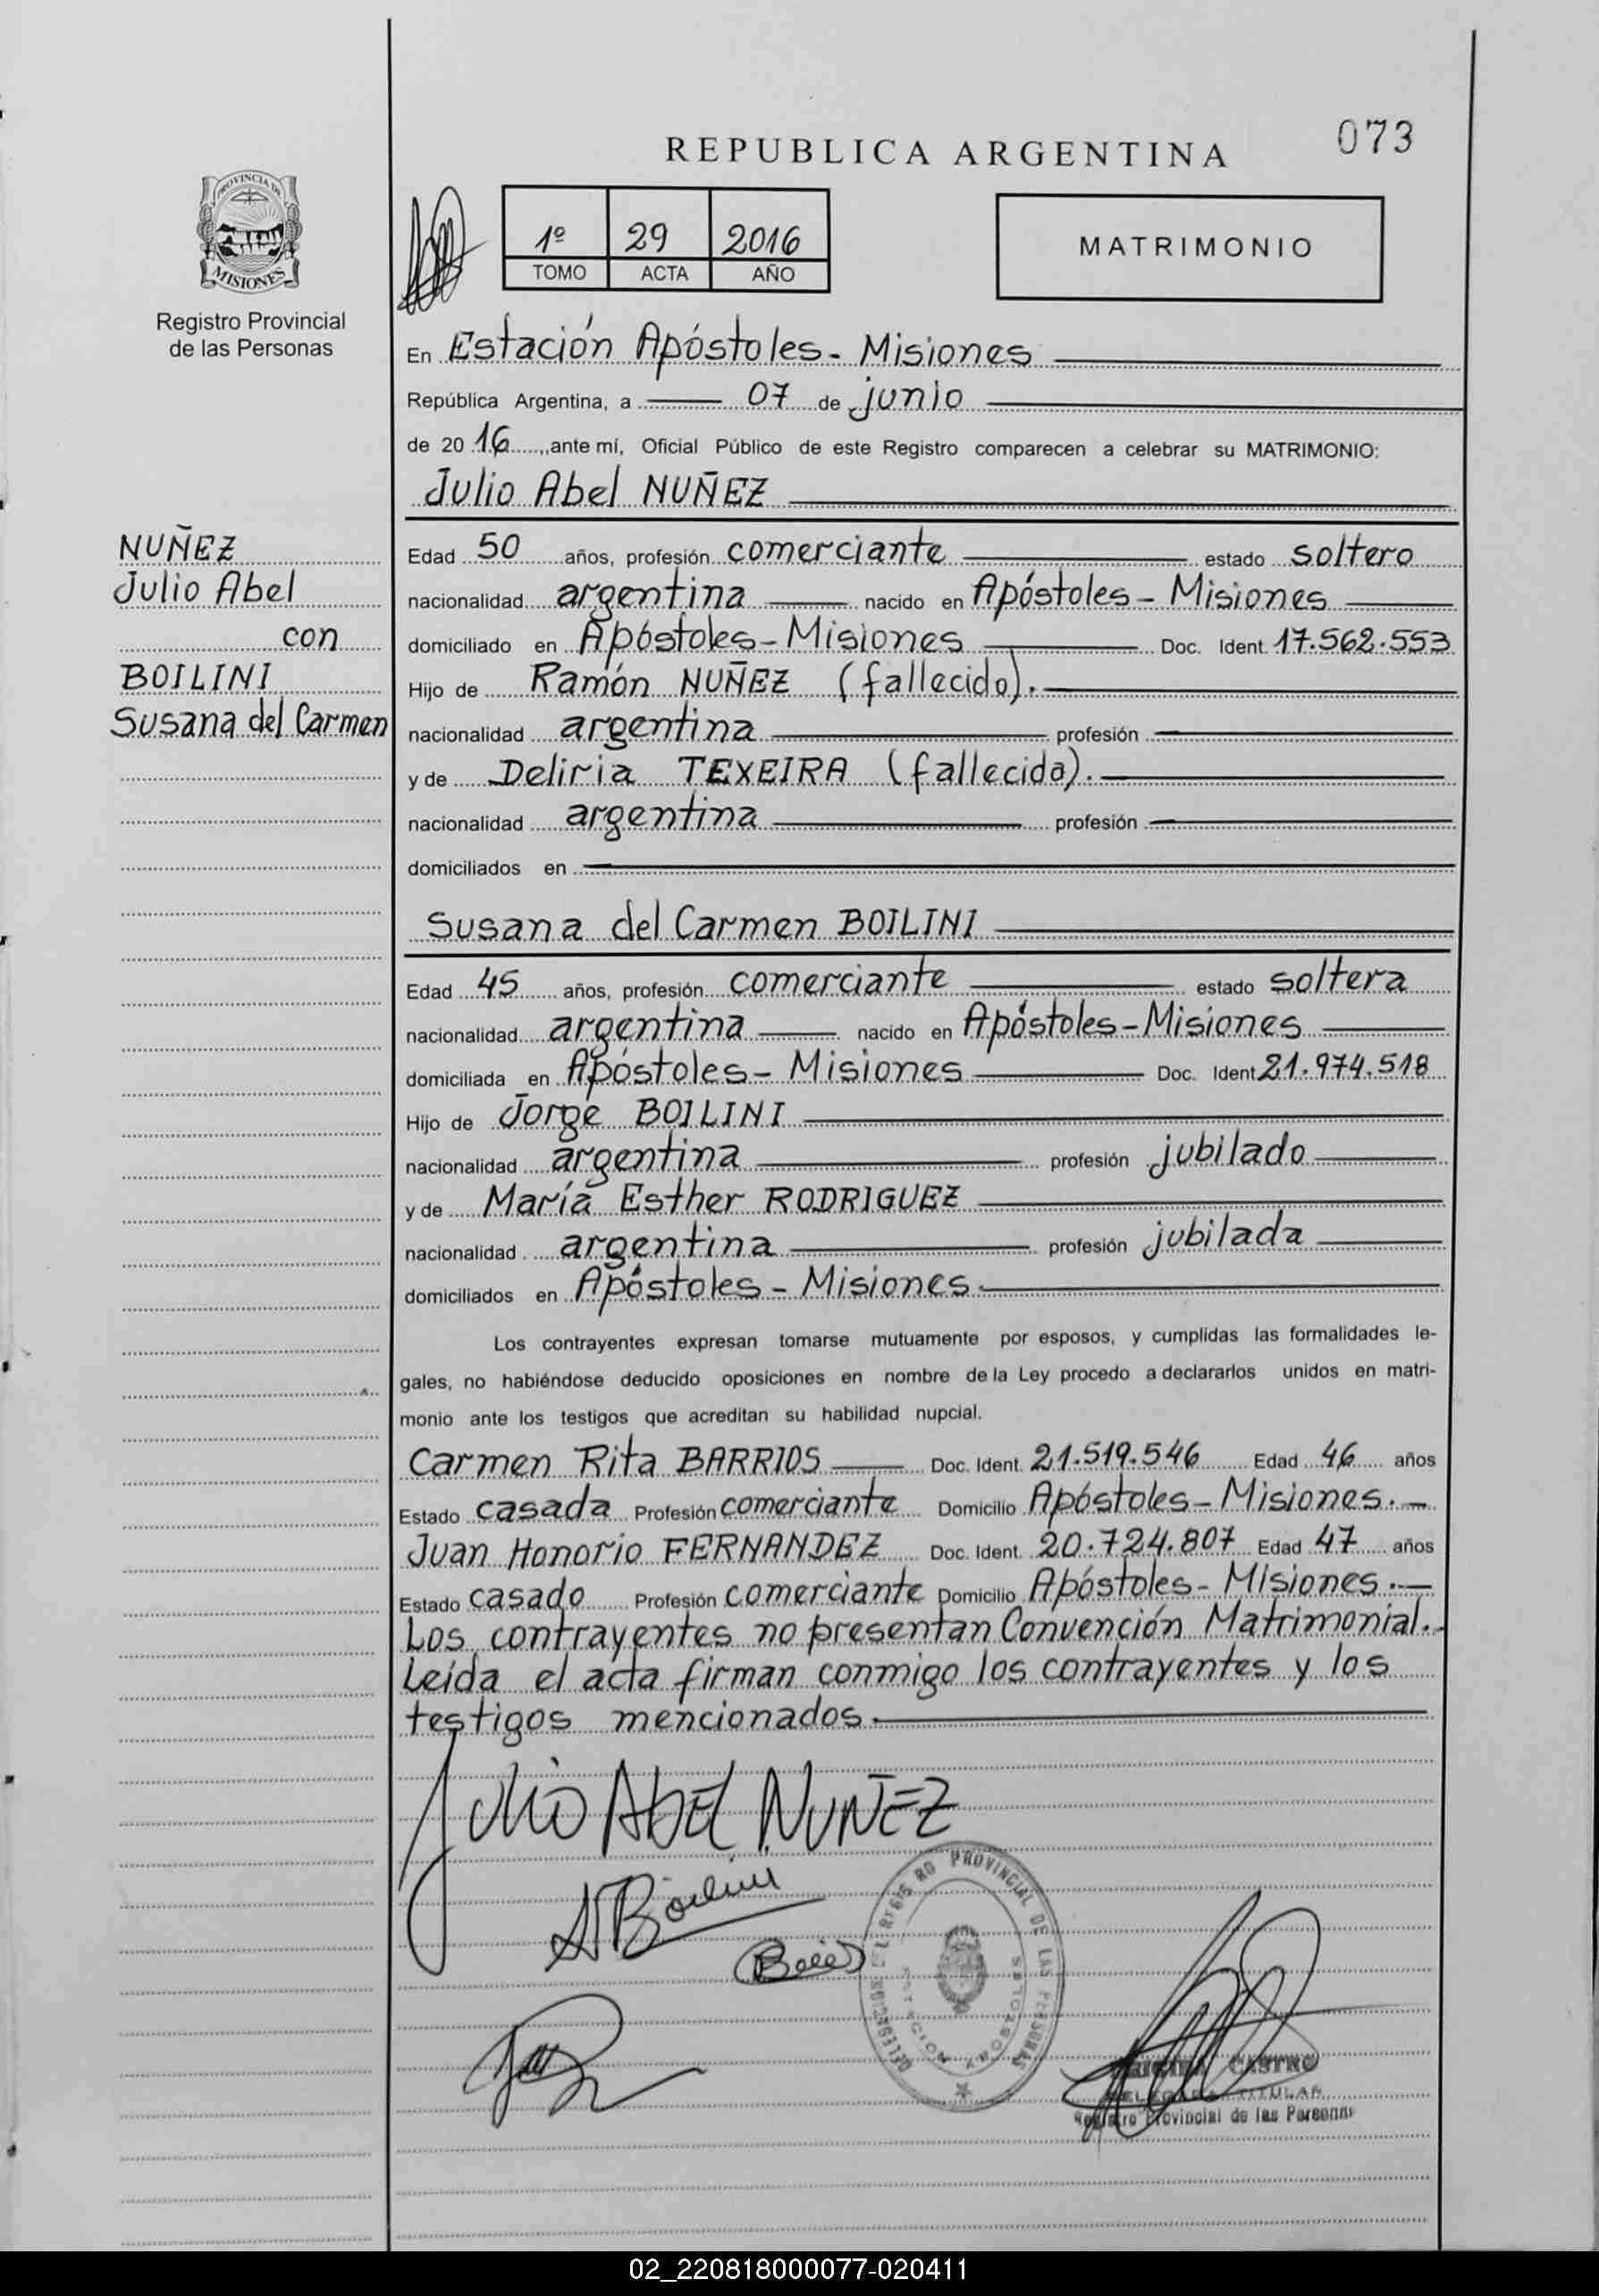 REPUBLICA ARGENTINA
073
PROVINCIA DE
MISIONES
Registro Provincial
de las Personas
1º 29 2016
TOMO ACTA AÑO
MATRIMONIO
En Estación Apóstoles - Misiones
República Argentina, a 07 de junio
de 2016, ante mí, Oficial Público de este Registro comparecen a celebrar su MATRIMONIO:
Julio Abel NUÑEZ
NUÑEZ
Julio Abel
con
BOILINI
Susana del Carmen
Edad 50 años, profesión comerciante estado soltero
nacionalidad argentina nacido en Apóstoles - Misiones
domiciliado en Apóstoles - Misiones Doc. Ident. 17.562.553
Hijo de Ramón NUÑEZ (fallecido).
nacionalidad argentina profesión
y de Deliria TEXEIRA (fallecida).
nacionalidad argentina profesión
domiciliados en
Susana del Carmen BOILINI
Edad 45 años, profesión comerciante estado soltera
nacionalidad argentina nacido en Apóstoles - Misiones
domiciliada en Apóstoles - Misiones Doc. Ident 21.974.518
Hijo de Jorge BOILINI
nacionalidad argentina profesión jubilado
y de María Esther RODRIGUEZ
nacionalidad argentina profesión jubilada
domiciliados en Apóstoles - Misiones.
Los contrayentes expresan tomarse mutuamente por esposos, y cumplidas las formalidades le-
gales, no habiéndose deducido oposiciones en nombre de la Ley procedo a declararlos unidos en matri-
monio ante los testigos que acreditan su habilidad nupcial.
Carmen Rita BARRIOS Doc. Ident. 21.519.546 Edad 46 años
Estado casada Profesión comerciante Domicilio Apóstoles - Misiones. -
Juan Honorio FERNANDEZ Doc. Ident. 20.724.807 Edad 47 años
Estado casado Profesión comerciante Domicilio Apóstoles - Misiones. -
Los contrayentes no presentan Convención Matrimonial.
Leída el acta firman conmigo los contrayentes y los
testigos mencionados.
JULIO ABEL NUÑEZ
SBoilini
DELEGACION DEL REGISTRO PROVINCIAL DE LAS PERSONAS
ESTACION APOSTOLES
CASTRO
DELEGADA TITULAR
Registro Provincial de las Personas
02_220818000077-020411